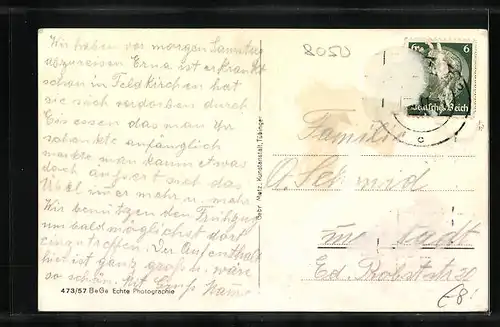 Wir haben vor morgen Samstag
abzureisen Erna ist erkrankt
schon in Feldkirchen hat
sie sich verdorben durch
Eis essen das man Ihr
schenkte anfänglich
merkte man kaum etwas
doch äussert sich das
Übel immer mehr u. mehr
Wir benützen den Frühzug
um baldmöglichst dort
einzutreffen. Der Aufenthalt
hier ist ganz gross. wäre
so schön. Mit Gruss
473/57 BeGe Echte Photographie
Gebr. Metz, Kunstanstalt, Tübingen
8050
6
Deutsches Reich
c
Familie
A. Schmid
stadt
Ed. Probst str. 20
€8.